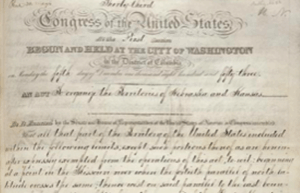 Thirty third
Congress of the United States,
At the First Session
BEGUN AND HELD AT THE CITY OF WASHINGTON
in the District of Columbia
on Monday the fifth day of December one thousand eight hundred and fifty three
AN ACT To organize the Territories of Nebraska and Kansas.
Be it Enacted by the Senate and House of Representatives of the United States of America in Congress assembled,
That all that part of the Territory of the United States included
within the following limits, except such portions thereof as are herein
after expressly exempted from the operations of this act, to wit: beginning
at a point in the Missouri river where the fortieth parallel of north la
titude crosses the same; thence west on said parallel to the east boun